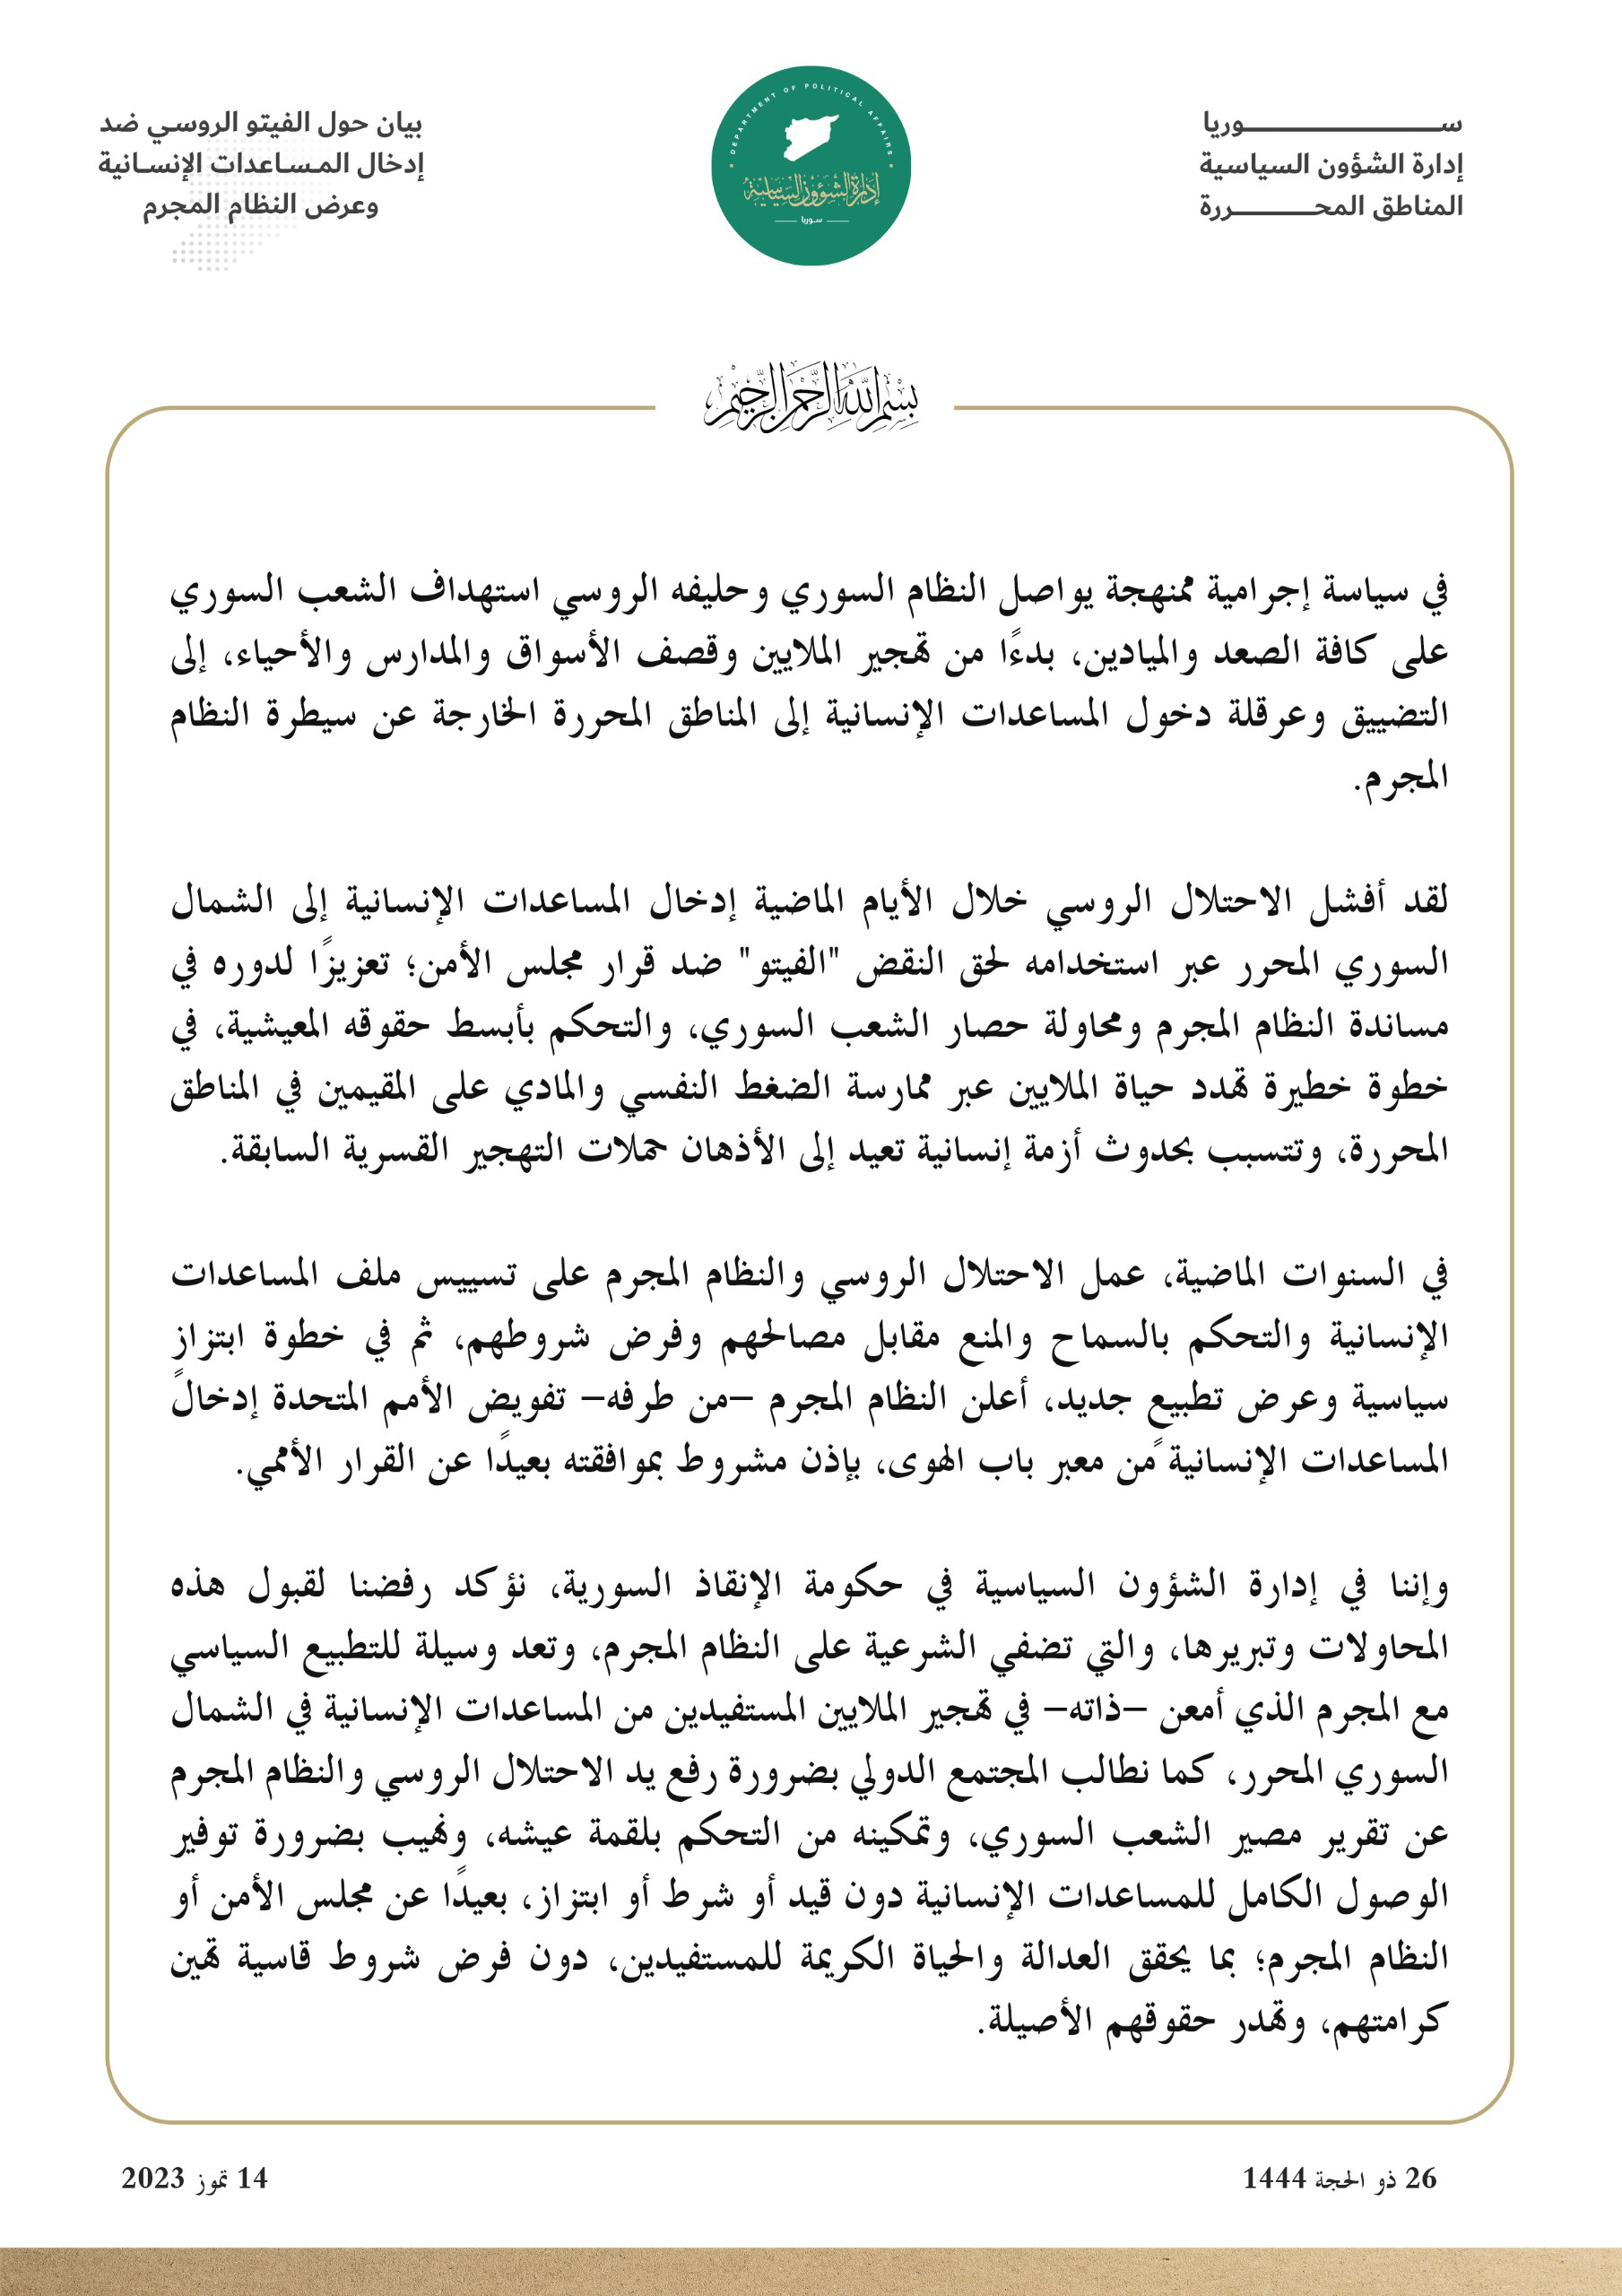 ســـــــــــوريا
إدارة الشؤون السياسية
المناطق المحـــــررة
DEPARTMENT OF POLITICAL AFFAIRS
إدارة الشؤون السياسية
سوريا
بيان حول الفيتو الروسي ضد
إدخال المساعدات الإنسانية
وعرض النظام المجرم
بسم الله الرحمن الرحيم
في سياسة إجرامية ممنهجة يواصل النظام السوري وحليفه الروسي استهداف الشعب السوري
على كافة الصعد والميادين، بدءًا من تهجير الملايين وقصف الأسواق والمدارس والأحياء، إلى
التضييق وعرقلة دخول المساعدات الإنسانية إلى المناطق المحررة الخارجة عن سيطرة النظام
المجرم.
لقد أفشل الاحتلال الروسي خلال الأيام الماضية إدخال المساعدات الإنسانية إلى الشمال
السوري المحرر عبر استخدامه لحق النقض "الفيتو" ضد قرار مجلس الأمن؛ تعزيزًا لدوره في
مساندة النظام المجرم ومحاولة حصار الشعب السوري، والتحكم بأبسط حقوقه المعيشية، في
خطوة خطيرة تهدد حياة الملايين عبر ممارسة الضغط النفسي والمادي على المقيمين في المناطق
المحررة، وتتسبب بحدوث أزمة إنسانية تعيد إلى الأذهان حملات التهجير القسرية السابقة.
في السنوات الماضية، عمل الاحتلال الروسي والنظام المجرم على تسييس ملف المساعدات
الإنسانية والتحكم بالسماح والمنع مقابل مصالحهم وفرض شروطهم، ثم في خطوة ابتزازٍ
سياسية وعرض تطبيعٍ جديد، أعلن النظام المجرم –من طرفه– تفويض الأمم المتحدة إدخالً
المساعدات الإنسانية من معبر باب الهوى، بإذن مشروط بموافقته بعيدًا عن القرار الأممي.
وإننا في إدارة الشؤون السياسية في حكومة الإنقاذ السورية، نؤكد رفضنا لقبول هذه
المحاولات وتبريرها، والتي تضفي الشرعية على النظام المجرم، وتعد وسيلة للتطبيع السياسي
مع المجرم الذي أمعن –ذاته– في تهجير الملايين المستفيدين من المساعدات الإنسانية في الشمال
السوري المحرر، كما نطالب المجتمع الدولي بضرورة رفع يد الاحتلال الروسي والنظام المجرم
عن تقرير مصير الشعب السوري، وتمكينه من التحكم بلقمة عيشه، ونهيب بضرورة توفير
الوصول الكامل للمساعدات الإنسانية دون قيد أو شرط أو ابتزاز، بعيدًا عن مجلس الأمن أو
النظام المجرم؛ بما يحقق العدالة والحياة الكريمة للمستفيدين، دون فرض شروط قاسية تهين
كرامتهم، وتهدر حقوقهم الأصيلة.
26 ذو الحجة 1444
14 تموز 2023